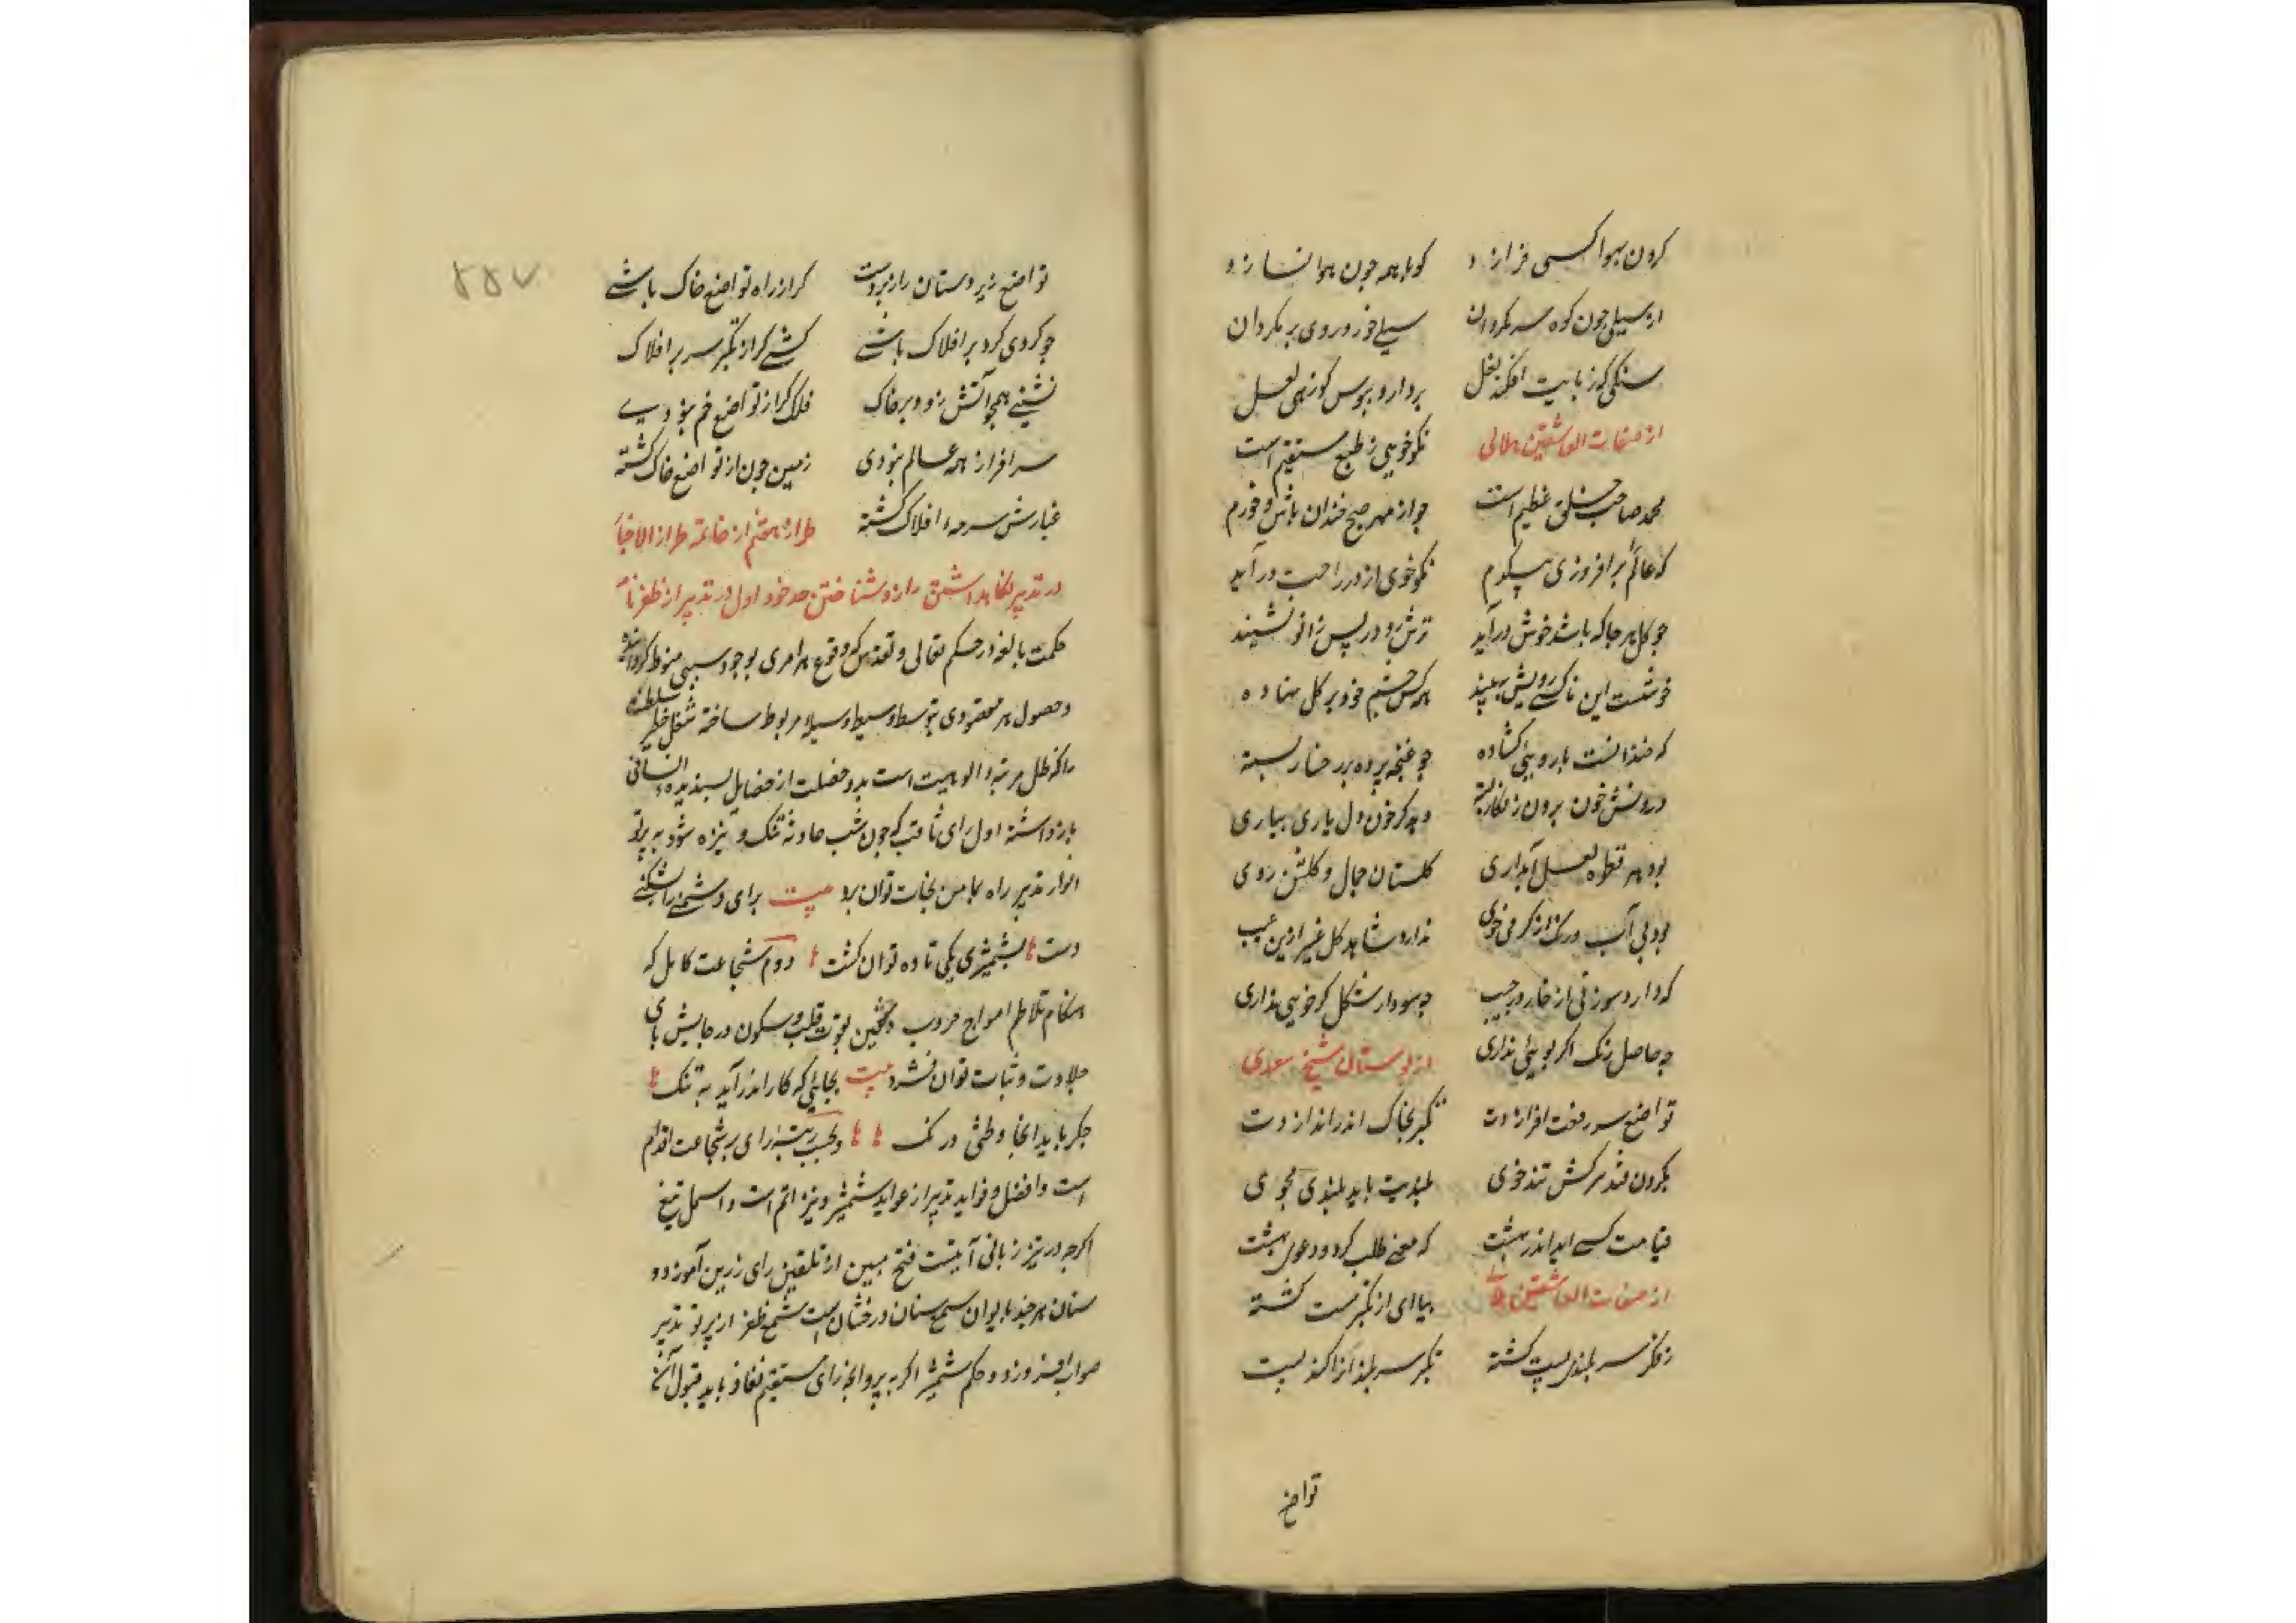 کردن بهوا کسی فرازد کو با همه چون هوا نسازد
از سیلی چون کوه سر مگردان سیلی خور و روی بر مگردان
سنکی که زپایت افکند نعل بردار و ببوس کو زهی لعل
از صفات العاشقین هلالی نکو خویی ز طبع مستقیم است
محمد صاحب خلق عظیم است چو از مهر صبح خندان باش و خرم
که عالم را برافروزی بیکدم نکو خوی از در راحت درآید
چو کل هر جا که باشد خوش درآید ترش رو در پس زانو نشیند
خوشست این تا کسی رویش نبیند همه کس چشم خود بر کل نهاده
که خندانست با روی کشاده چو غنچه پرده بر رخسار بسته
درونش خون برون زنکار بسته دهد کر خون دل یاری بیاری
بود هر قطره لعل آبداری کلستان جمال و کلشن روی
بود بی آب و رنک از کرمی خوی ندارد شاهد کل غیر ازین عیب
که دارد سوزنی از خار در جیب چه سود ار شکل کر خوبی نداری
چه حاصل رنک اکر بویی نداری از بوستان شیخ سعدی
تواضع سر رفعت افرازدت تکبر بخاک اندر اندازدت
بکردن فتد سرکش تندخوی بلندیت باید بلندی مجوی
قیامت کسی اندر بهشت که معنی طلب کرد و دعوی بهشت
از صفات العاشقین هلالی بیا ای از تکبر مست کشته
ز فکر سر بلندی پست کشته تکبر سر بلندانرا کند پست
تواضع
۵۵۷
تواضع زیر دستان را زبردست کر از راه تواضع خاک باشی
چو کردی کرد بر افلاک باشی کشی کر از تکبر سر بر افلاک
نشینی همچو آتش زود بر خاک فلک کر از تواضع خم نبودی
سرافراز همه عالم نبودی زمین چون از تواضع خاک کشته
غبارش سرمهٔ افلاک کشته طراز هشتم از خاتمه طراز الاخبار
در تدبیر نکاهداشتن راز و شناختن حد خود اول در تدبیر از ظفرنامه
حکمت بالغه در حکم تعالی و تقدس که وقوع هر امری بوجود سببی منوط کردانیده
و حصول هر مقصودی بتوسط وسیط و وسیله مربوط ساخته شغل خطیر سلطنت
را که ظل مرتبهٔ الوهیت است بدو خصلت از خصایل پسندیدهٔ انسانی
باز داشته اول رای ثاقب که چون شب حادثه تنک و تیره شود به پرتو
انوار تدبیر راه بمامن نجات توان برد بیت برای دشمنی را بشکنی
دست بشمشیری یکی تا ده توان کشت دوم شجاعت کامل که
هنکام تلاطم امواج حروب و محن بقوت قلب و سکون در جایش پای
جلادت و ثبات توان فشرد بیت بجایی که کار اندر آید به تنک
جکر باید آنجا و طی درنک و بحسب رتبه رای بر شجاعت اقدام
است و افضل و فواید تدبیر از عواید شمشیر و نیزه اتم است و اسهل تیغ
اکرچه در تیز زبانی آیتیست فتح مبین از تلقین رای زرین آموزد و
سنان هر چند با یوان سنان درخشان است شمع ظفر از پرتو تدبیر
صواب افروزد و حکم شمشیر اکر به پروانهٔ رای مستقیم نفاذ باید قبول